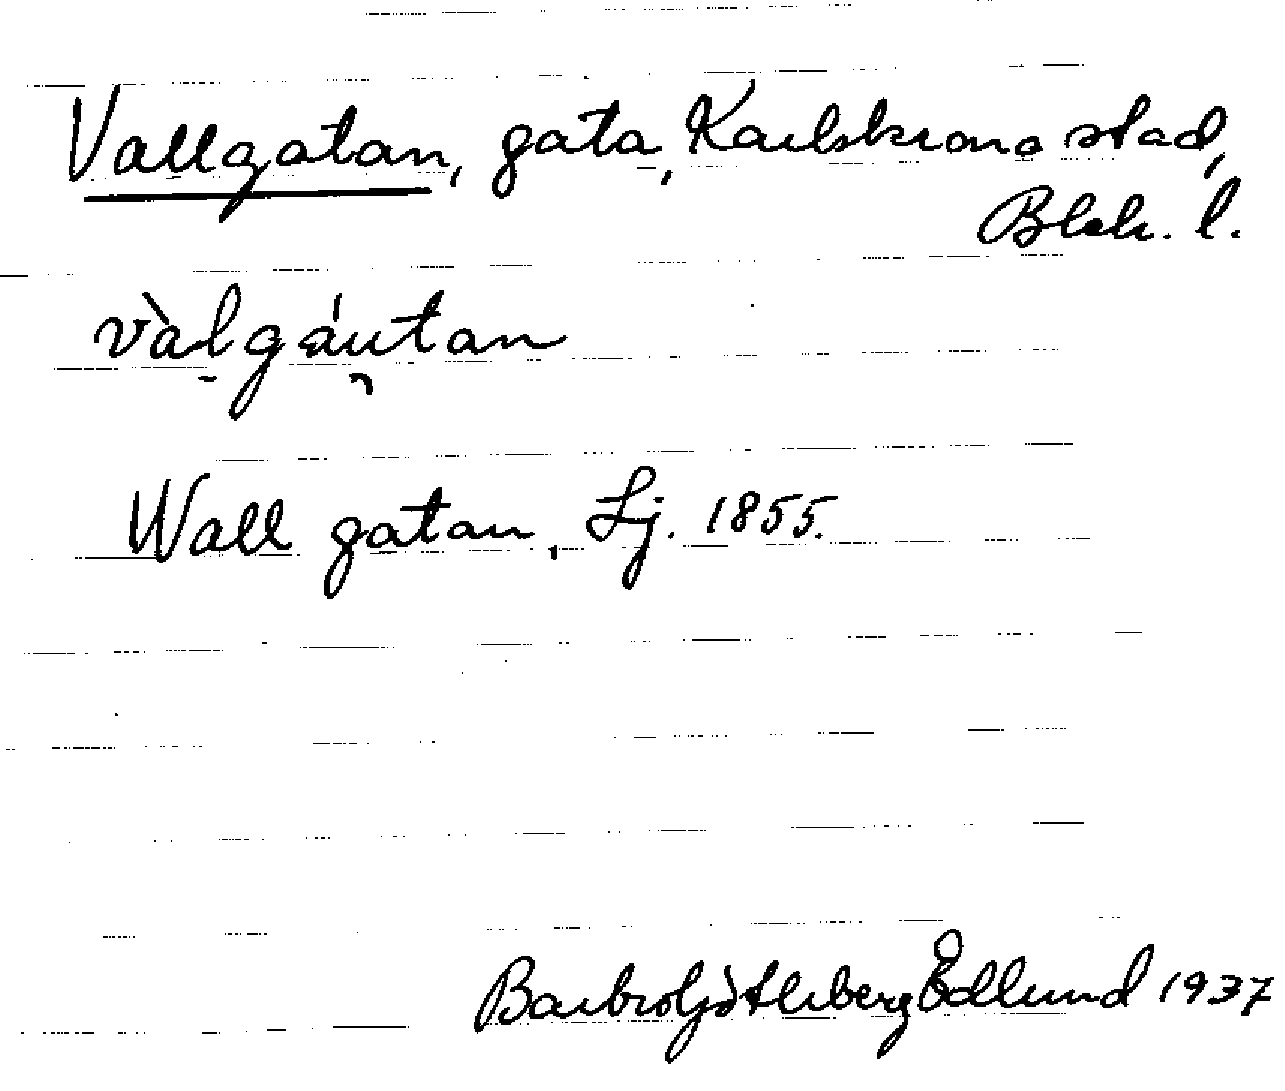 Vallgatan, gata, Karlskrona stad,
Blek. l.
vàlgáutan
Wall gatan, Lj. 1855.
Barbro Götlberg Edlund 1937